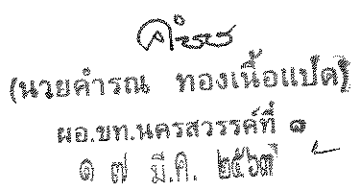 (นายคำรณ ทองเนื้อแปด)
ผอ.ขท.นครสวรรค์ที่ ๑
๑ ๗ มี.ค. ๒๕๖๓